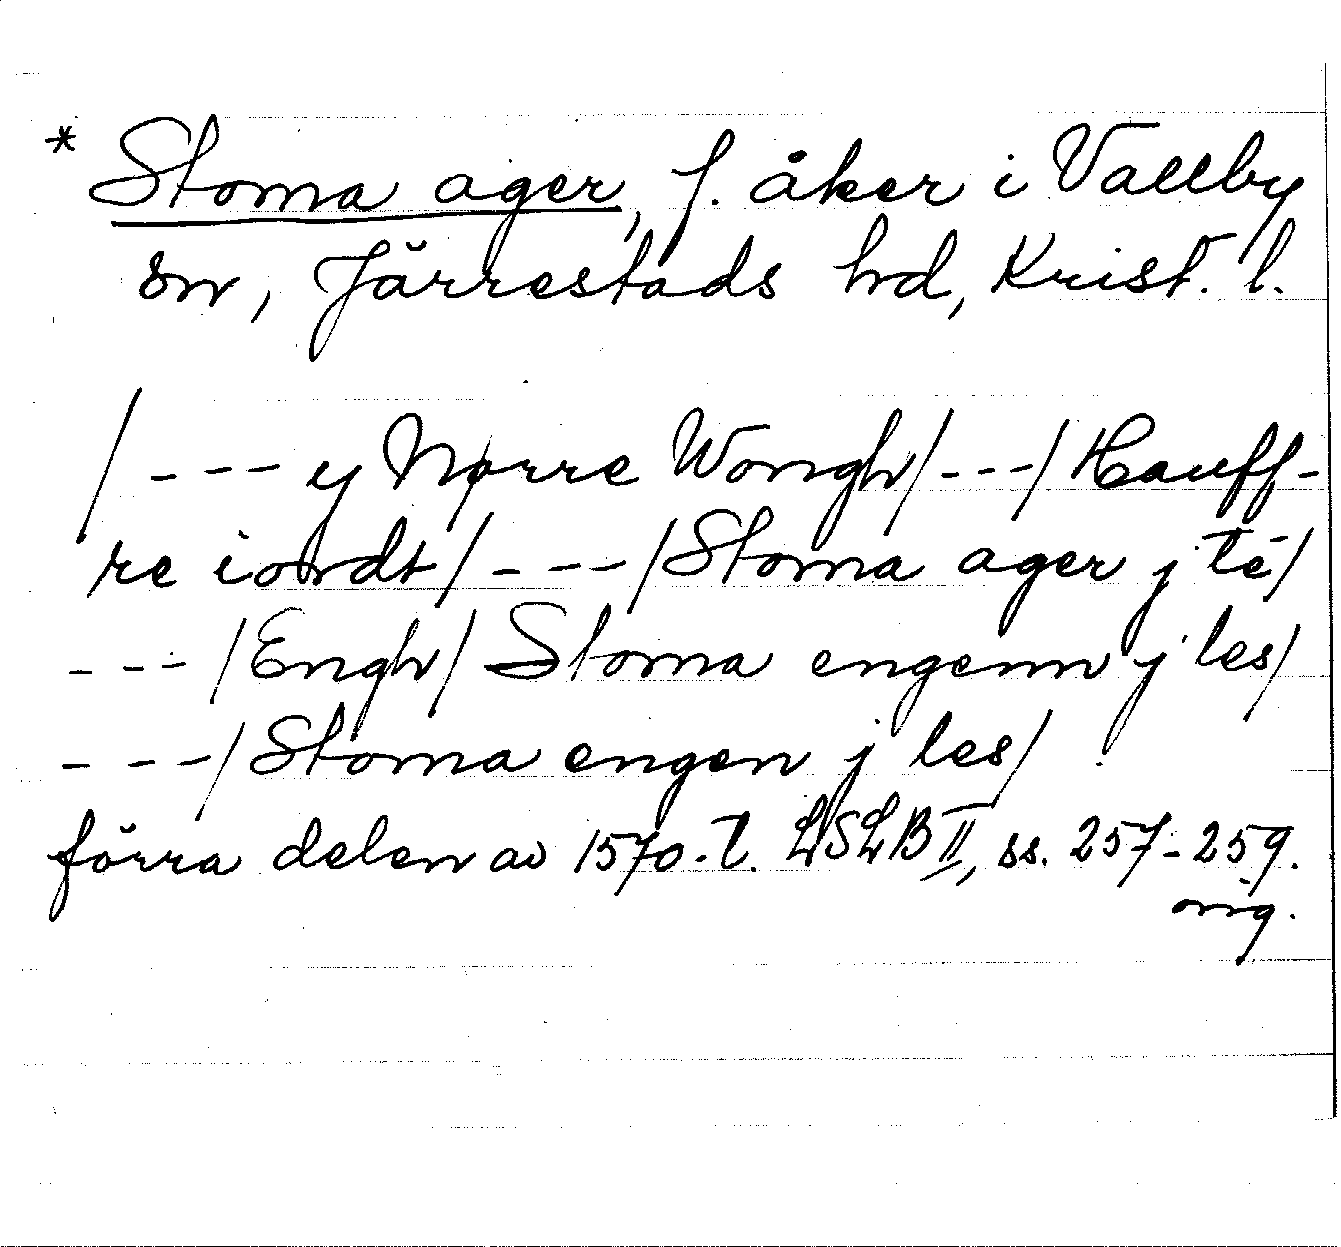 * Stoma ager, f. åker i Vallby
sn, Järrestads hd, Krist. l.
/ --- y Nørre Wongh / --- / Hauff-
re iordt / --- / Stoma ager j te /
--- / Engh / Stoma engenn j les /
--- / Stoma engen j les /
förra delen av 1570-t. LSLB II, ss. 257-259.
orig.